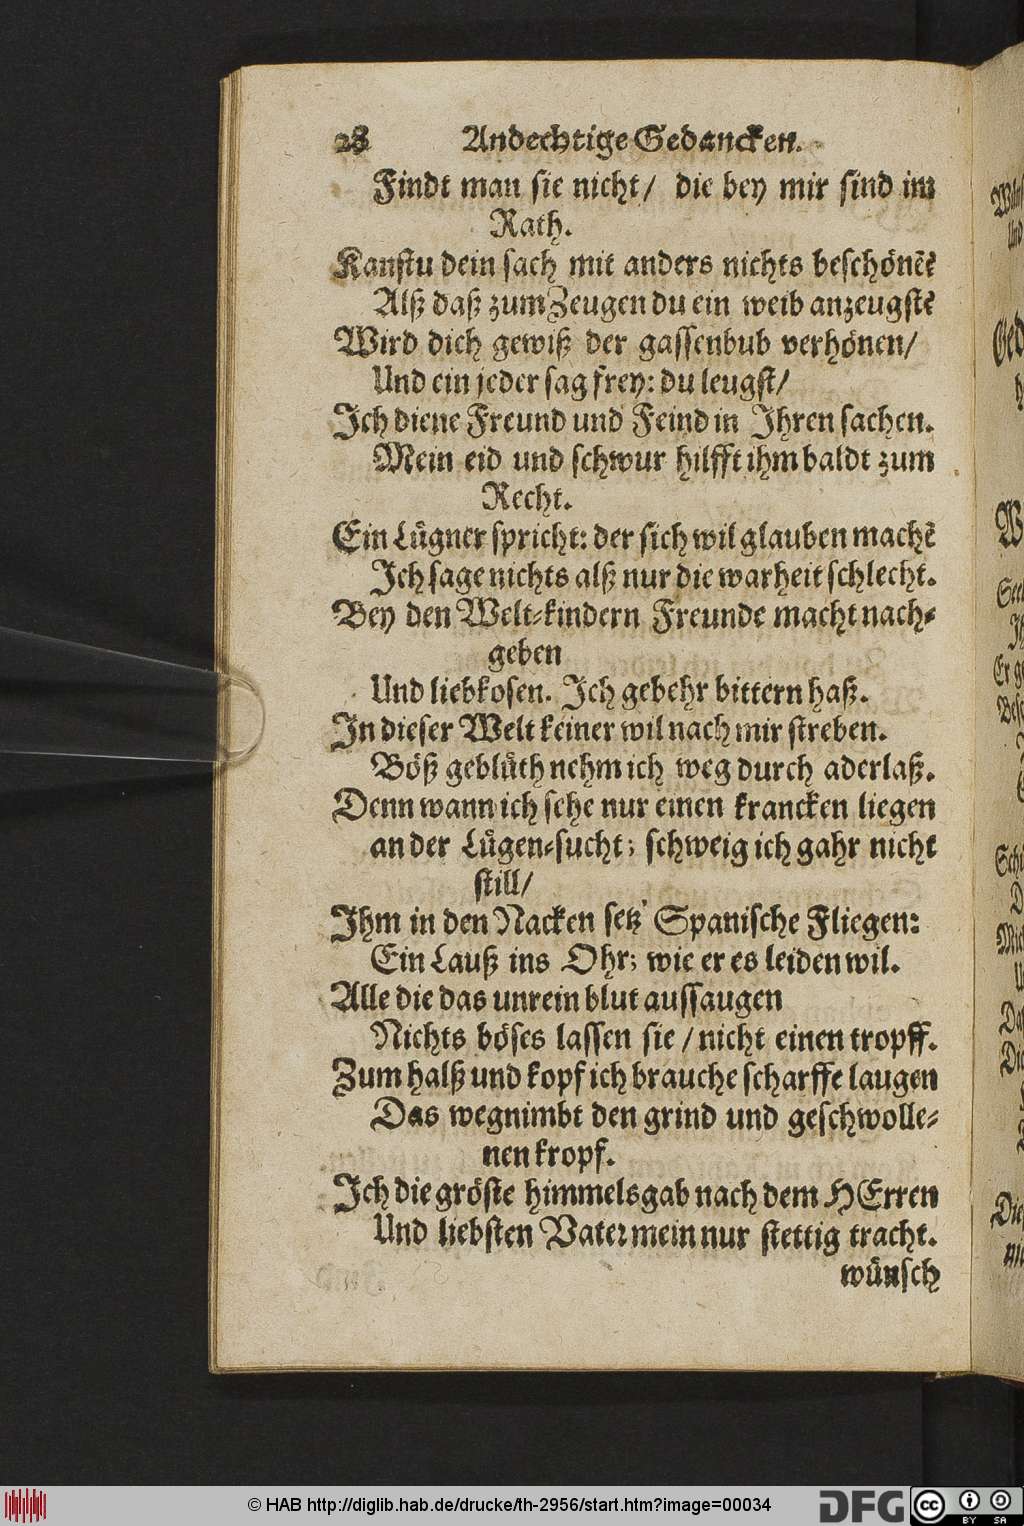 28 Andechtige Gedancken.
Findt man sie nicht/ die bey mir sind im
Rath.
Kanstu dein sach mit anders nichts beschönēt
Alß daß zum Zeugen du ein weib anzeugstē
Wird dich gewiß der gassenbub verhönen/
Und ein jeder sag frey: du leugst/
Ich diene Freund und Feind in Ihren sachen.
Mein eid und schwur hilfft ihm baldt zum
Recht.
Ein Lügner spricht: der sich wil glauben machē
Ich sage nichts alß nur die warheit schlecht.
Bey den Welt-kindern Freunde macht nach-
geben
Und liebkosen. Ich gebehr bittern haß.
In dieser Welt keiner wil nach mir streben.
Böß geblüth nehm ich weg durch aderlaß.
Denn wann ich sehe nur einen krancken liegen
an der Lügen-sucht; schweig ich gahr nicht
still/
Ihm in den Nacken setz' Spanische Fliegen:
Ein Lauß ins Ohr; wie er es leiden wil.
Alle die das unrein blut aussaugen
Nichts böses lassen sie / nicht einen tropff.
Zum halß und kopf ich brauche scharffe laugen
Das wegnimbt den grind und geschwolle-
nen kropf.
Ich die gröste himmelsgab nach dem HErren
Und liebsten Vater mein nur stettig tracht.
wünsch
© HAB http://diglib.hab.de/drucke/th-2956/start.htm?image=00034
DFG
CC BY SA